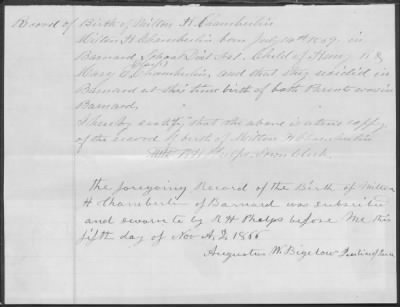 Record of Birth of Milton H. Chamberlin
Milton H Chamberlin born July 10th 1839. in
Barnard School Dist No1. Child of Henry &
Mary Chamberlin, and that they resided in
Barnard at this time birth of both Parents was in
Barnard,
I hereby certify that the above is a true copy
of the record of birth of Milton H Chamberlin
R H Phelps Town Clerk.
The foregoing Record of the Birth of Milton
H Chamberlin of Barnard was subscribed
and sworn to by R H Phelps before me this
fifth day of Nov A.D. 1866
Augustus W. Bigelow Justice of Peace